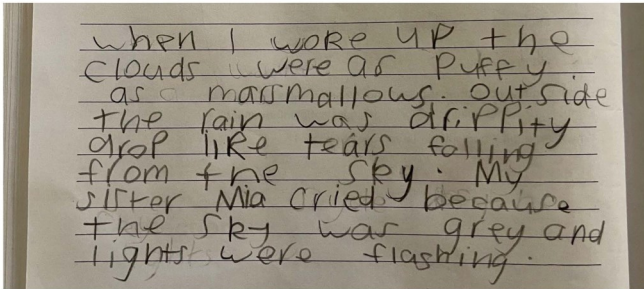 when I woke up the
clouds were as puffy
as marsmallows. outside
the rain was drippity
drop like tears falling
from the sky. My
sister Mia cried because
the sky was grey and
lights were flashing.